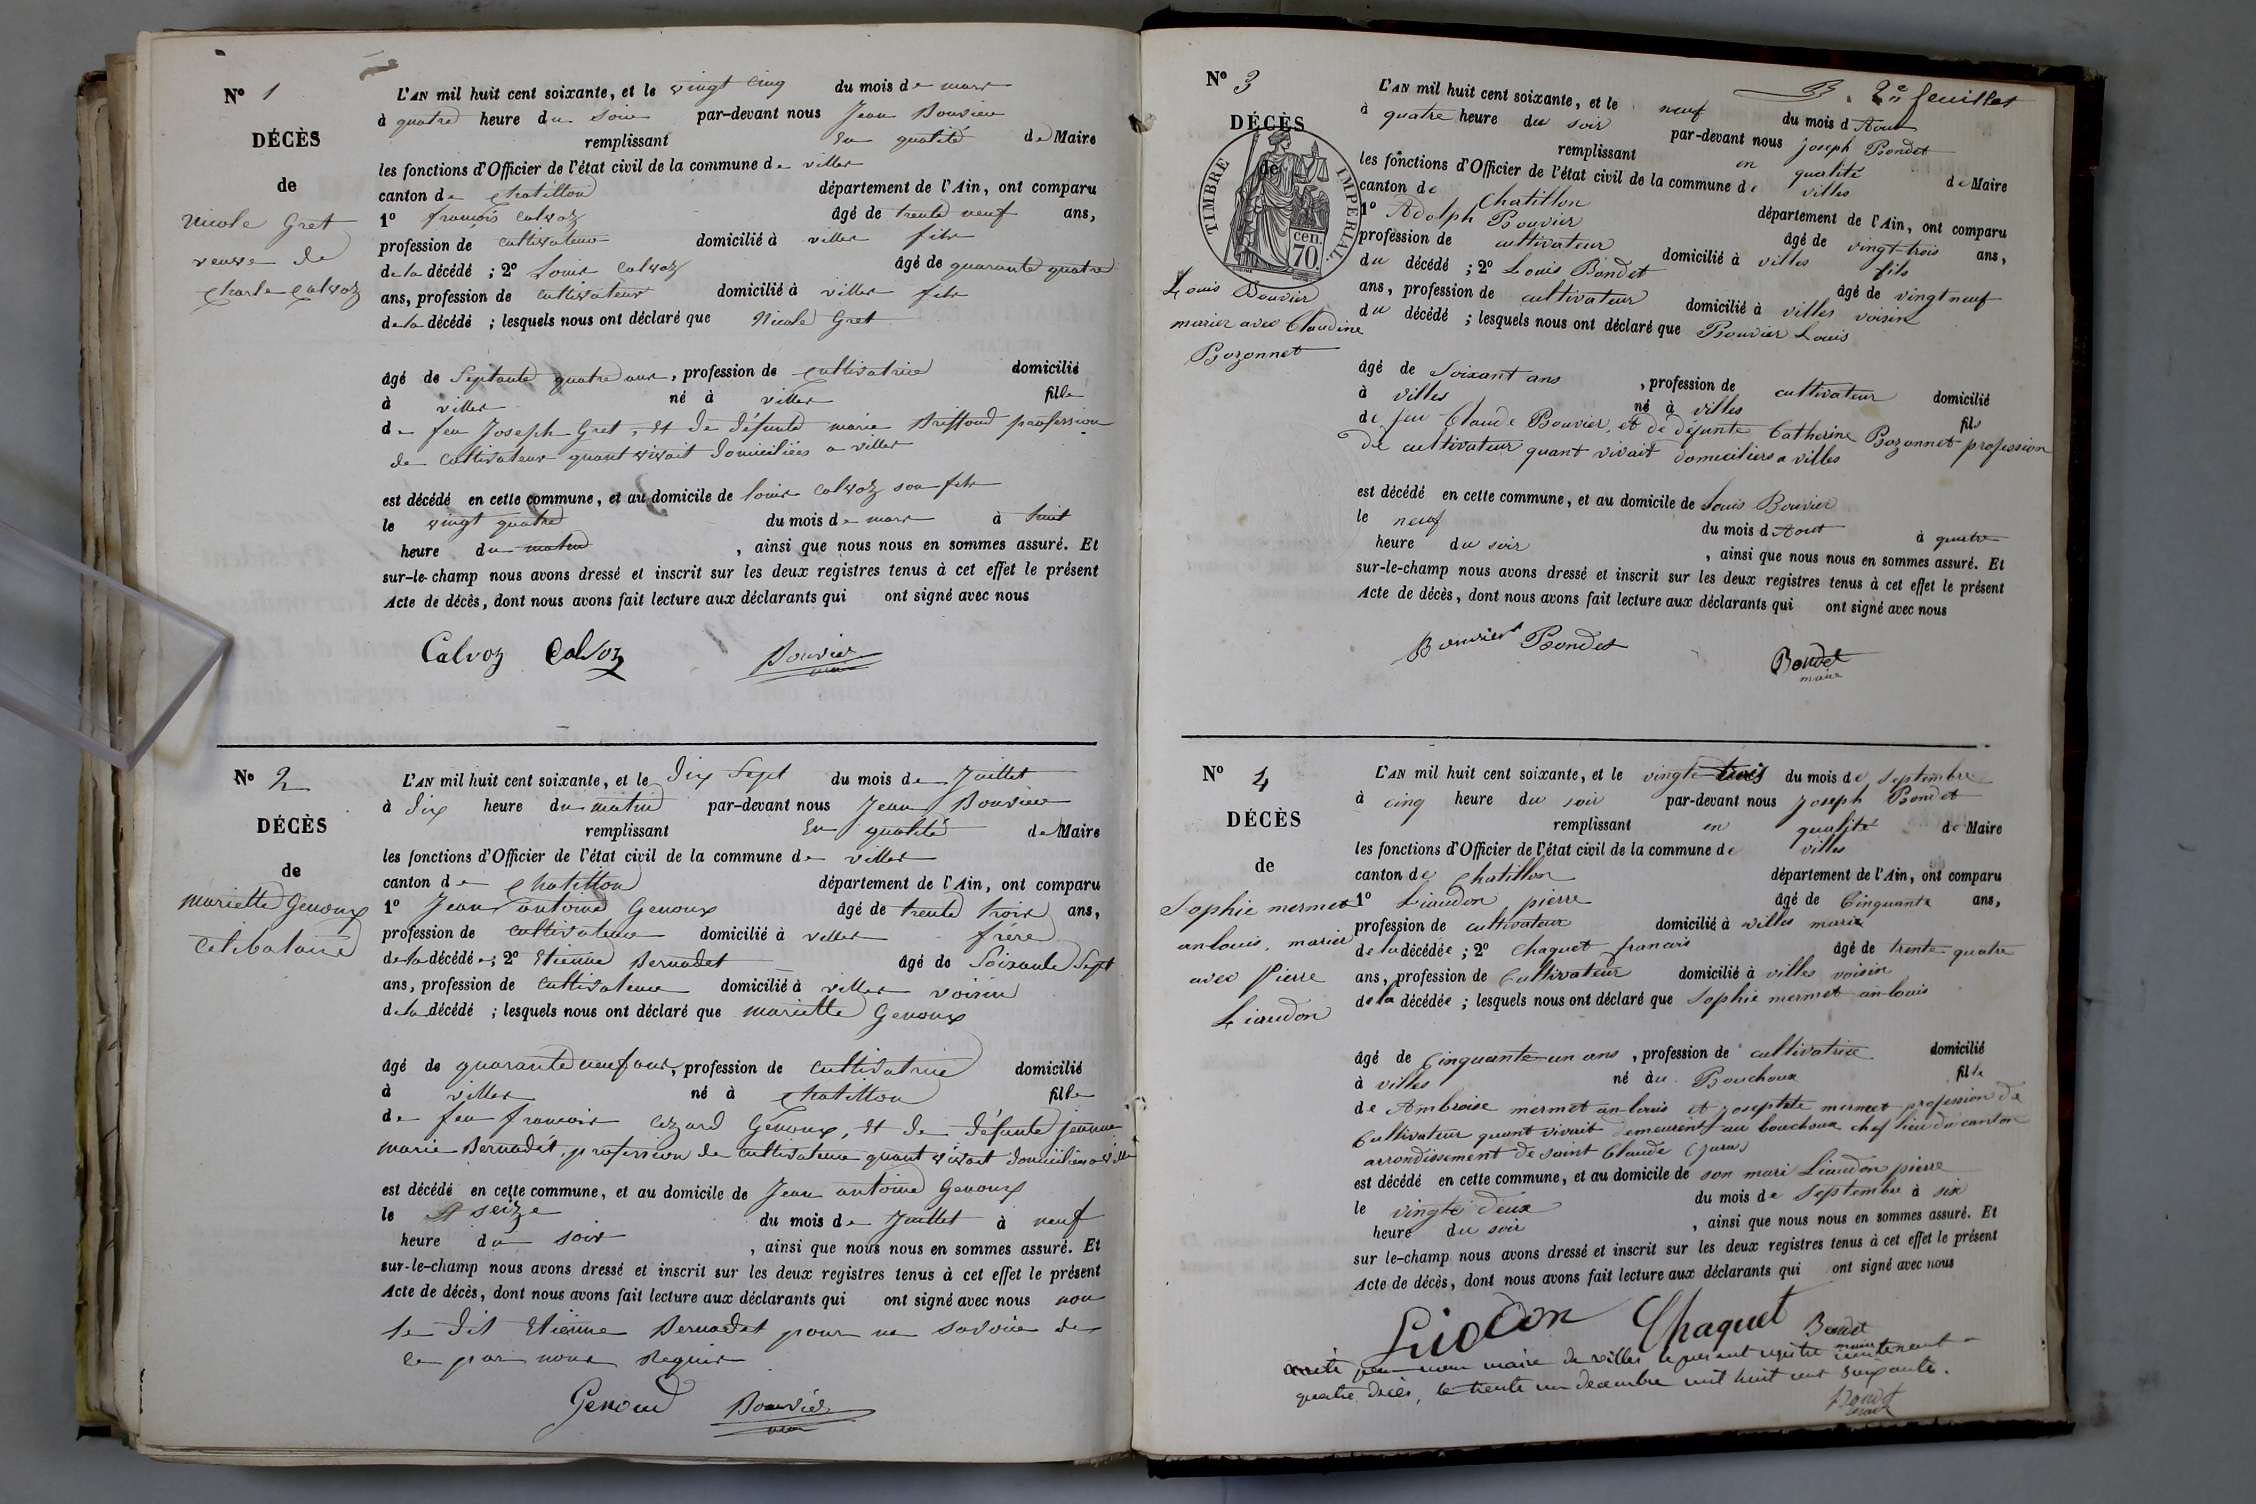 N° 1
DÉCÈS
de
Nicole Gret
veuve de
Charle Calvoz
L'AN mil huit cent soixante, et le vingt cinq du mois de mars
à quatre heure du soir par-devant nous Jean Bouvier
remplissant en qualité de Maire
les fonctions d'Officier de l'état civil de la commune de villes
canton de Chatillon département de l'Ain, ont comparu
1° françois Calvoz âgé de trente neuf ans,
profession de cultivateur domicilié à villes fils
de la décédé ; 2° Louis Calvoz âgé de quarante quatre
ans, profession de cultivateur domicilié à villes fils
de la décédé ; lesquels nous ont déclaré que Nicole Gret
âgé de Septante quatre ans, profession de cultivatrice domicilié
à villes né à villes fille
de feu Joseph Gret, et de défunte marie profession
de cultivateur quant vivait domiciliées a villes
est décédé en cette commune, et au domicile de louis Calvoz son fils
le vingt quatre du mois de mars à huit
heure du matin , ainsi que nous nous en sommes assuré. Et
sur-le-champ nous avons dressé et inscrit sur les deux registres tenus à cet effet le présent
Acte de décès, dont nous avons fait lecture aux déclarants qui ont signé avec nous
Calvoz Calvoz Bouvier
N° 2
DÉCÈS
de
mariette Genoux
Célibataire
L'AN mil huit cent soixante, et le dix Sept du mois de Juillet
à dix heure du matin par-devant nous Jean Bouvier
remplissant en qualité de Maire
les fonctions d'Officier de l'état civil de la commune de villes
canton de Chatillon département de l'Ain, ont comparu
1° Jean antoine Genoux âgé de trente trois ans,
profession de cultivateur domicilié à villes frére
de la décédée ; 2° Etienne Bernadet âgé de Soixante Sept
ans, profession de cultivateur domicilié à villes voisin
de la décédé ; lesquels nous ont déclaré que mariette Genoux
âgé de quarante neuf ans, profession de cultivatrice domicilié
à villes né à Chatillon fille
de feu francois Cezard Genoux, et de défunte jeanne
marie Bernadet, profession de cultivateur quant vivait domiciliées a villes
est décédé en cette commune, et au domicile de Jean antoine Genoux
le seize du mois de Juillet à neuf
heure du soir , ainsi que nous nous en sommes assuré. Et
sur-le-champ nous avons dressé et inscrit sur les deux registres tenus à cet effet le présent
Acte de décès, dont nous avons fait lecture aux déclarants qui ont signé avec nous non
le dit Etienne Bernadet pour ne savoir de
ce par nous Requis
Genoud Bouvier
2e feuillet
N° 3
DÉCÈS
de
TIMBRE IMPÉRIAL
70 cen.
Louis Bouvier
marier avec Claudine
Bozonnet
L'AN mil huit cent soixante, et le neuf du mois d Aout
à quatre heure du soir par-devant nous joseph Bondet
remplissant en qualité de Maire
les fonctions d'Officier de l'état civil de la commune de villes
canton de Chatillon département de l'Ain, ont comparu
1° Adolph Bouvier âgé de vingt-trois ans,
profession de cultivateur domicilié à villes fils
du décédé ; 2° Louis Bondet âgé de vingt neuf
ans, profession de cultivateur domicilié à villes voisin
du décédé ; lesquels nous ont déclaré que Bouvier Louis
âgé de Soixant ans , profession de cultivateur domicilié
à villes né à villes fils
de feu Claude Bouvier, et de défunte Catherine Bozonnet profession
de cultivateur quant vivait domiciliers a villes
est décédé en cette commune, et au domicile de Louis Bouvier
le neuf du mois d Aout à quatre
heure du soir , ainsi que nous nous en sommes assuré. Et
sur-le-champ nous avons dressé et inscrit sur les deux registres tenus à cet effet le présent
Acte de décès, dont nous avons fait lecture aux déclarants qui ont signé avec nous
Bouvier Bondet Bondet
maire
N° 4
DÉCÈS
de
Sophie mermet
an-louis, marier
avec Pierre
Liaudon
L'AN mil huit cent soixante, et le vingte trois du mois de septembre
à cinq heure du soir par-devant nous joseph Bondet
remplissant en qualité de Maire
les fonctions d'Officier de l'état civil de la commune de villes
canton de Chatillon département de l'Ain, ont comparu
1° Liaudon pierre âgé de Cinquante ans,
profession de cultivateur domicilié à villes marie
de la décédée ; 2° Chaquet francais âgé de trente-quatre
ans, profession de Cultivateur domicilié à villes voisin
de la décédée ; lesquels nous ont déclaré que Sophie mermet an-louis
âgé de Cinquante-un ans , profession de cultivatrice domicilié
à villes né au Bouchoux fille
de Ambroise mermet an-louis et josephte mermet profession de
Cultivateur quant vivait demeurent au bouchoux chef lieu de canton
arrondissement de saint Claude (jura)
est décédé en cette commune, et au domicile de son mari Liaudon pierre
le vingte deux du mois de Septembre à six
heure du soir , ainsi que nous nous en sommes assuré. Et
sur le-champ nous avons dressé et inscrit sur les deux registres tenus à cet effet le présent
Acte de décès, dont nous avons fait lecture aux déclarants qui ont signé avec nous
Liodon Chaquet Bondet
maire
arrêté par nous maire de villes le présent registre contenant
quatre décès, le trente un decembre mil huit cent soixante.
Bondet
maire